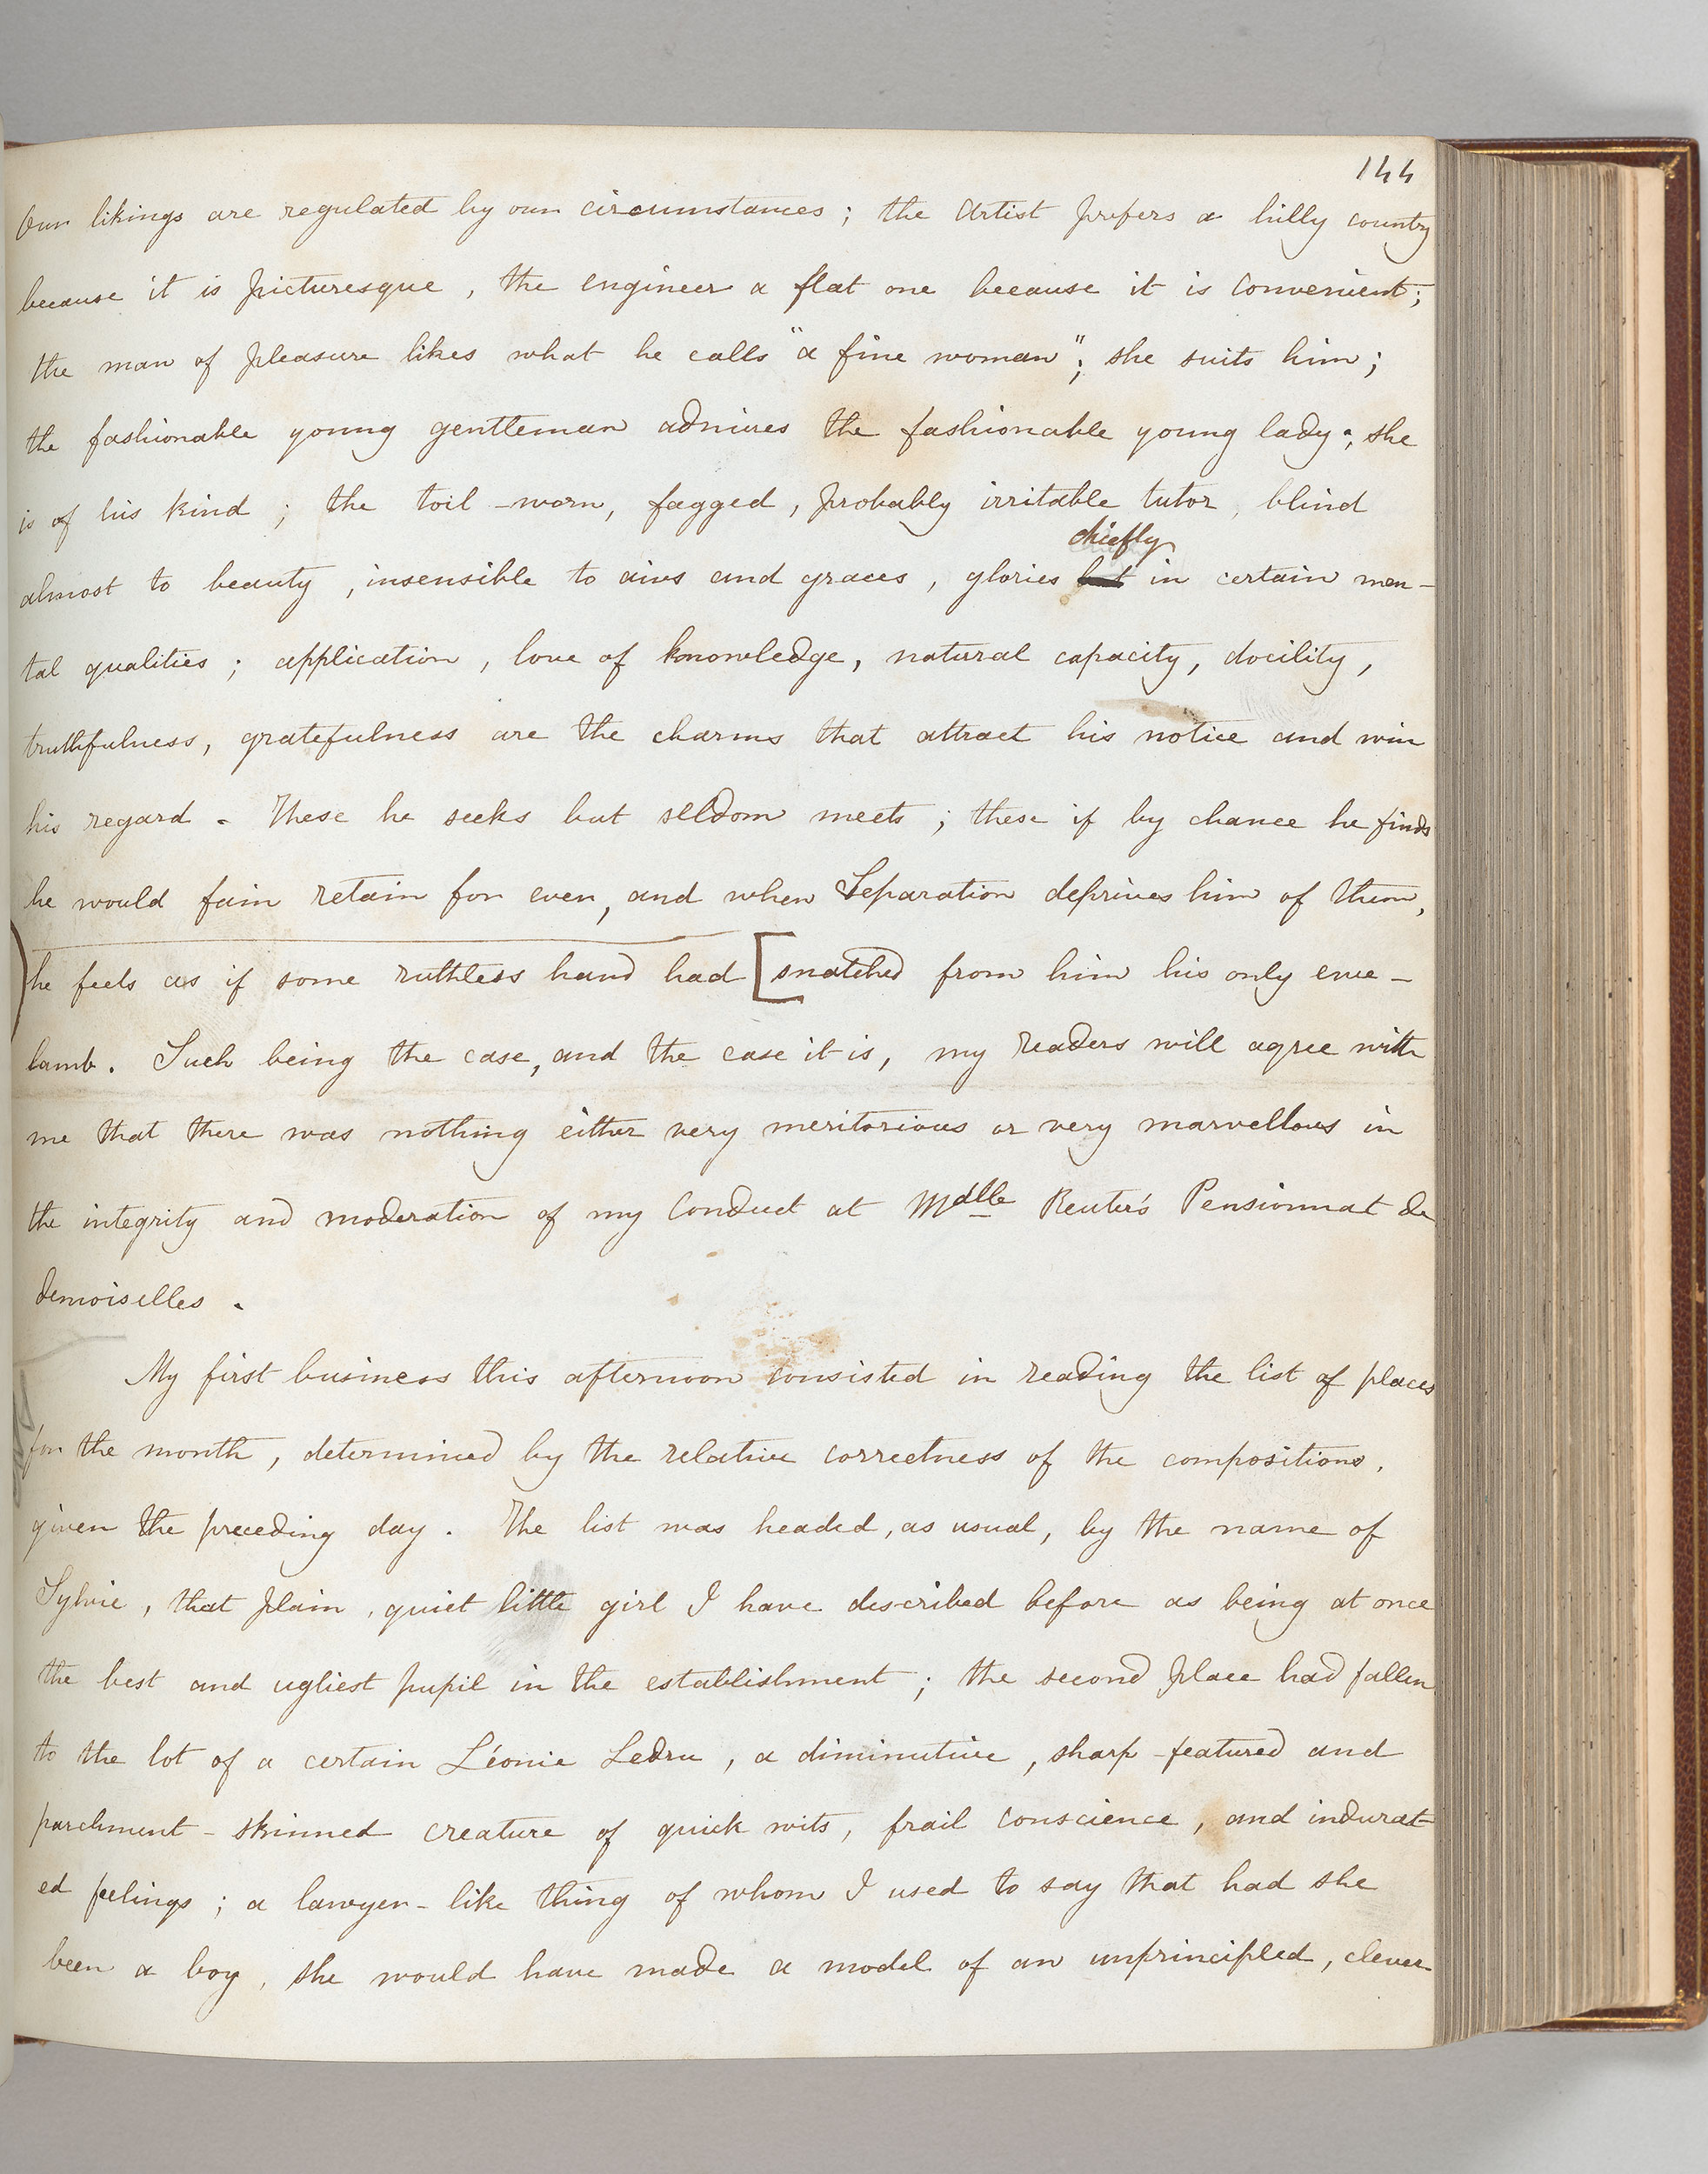 144
Our likings are regulated by our circumstances; the Artist prefers a hilly country
because it is picturesque, the engineer a flat one because it is convenient;
the man of pleasure likes what he calls "a fine woman"; she suits him;
the fashionable young gentleman admires the fashionable young lady; she
is of his kind; the toil-worn, fagged, probably irritable tutor, blind
chiefly
almost to beauty, insensible to airs and graces, glories but in certain men-
tal qualities; application, love of knowledge, natural capacity, docility,
truthfulness, gratefulness are the charms that attract his notice and win
his regard. These he seeks but seldom meets; these if by chance he finds
he would fain retain for ever, and when Separation deprives him of them,
he feels as if some ruthless hand had [snatched from him his only ewe-
lamb. Such being the case, and the case it is, my readers will agree with
me that there was nothing either very meritorious or very marvellous in
the integrity and moderation of my conduct at Mdlle Reuter's Pensionnat de
demoiselles.
My first business this afternoon consisted in reading the list of places
for the month, determined by the relative correctness of the compositions,
given the preceding day. The list was headed, as usual, by the name of
Sylvie, that plain, quiet little girl I have described before as being at once
the best and ugliest pupil in the establishment; the second place had fallen
to the lot of a certain Léonie Ledru, a diminutive, sharp-featured and
parchment-skinned creature of quick wits, frail conscience, and indurat-
ed feelings; a lawyer-like thing of whom I used to say that had she
been a boy, she would have made a model of an unprincipled, clever